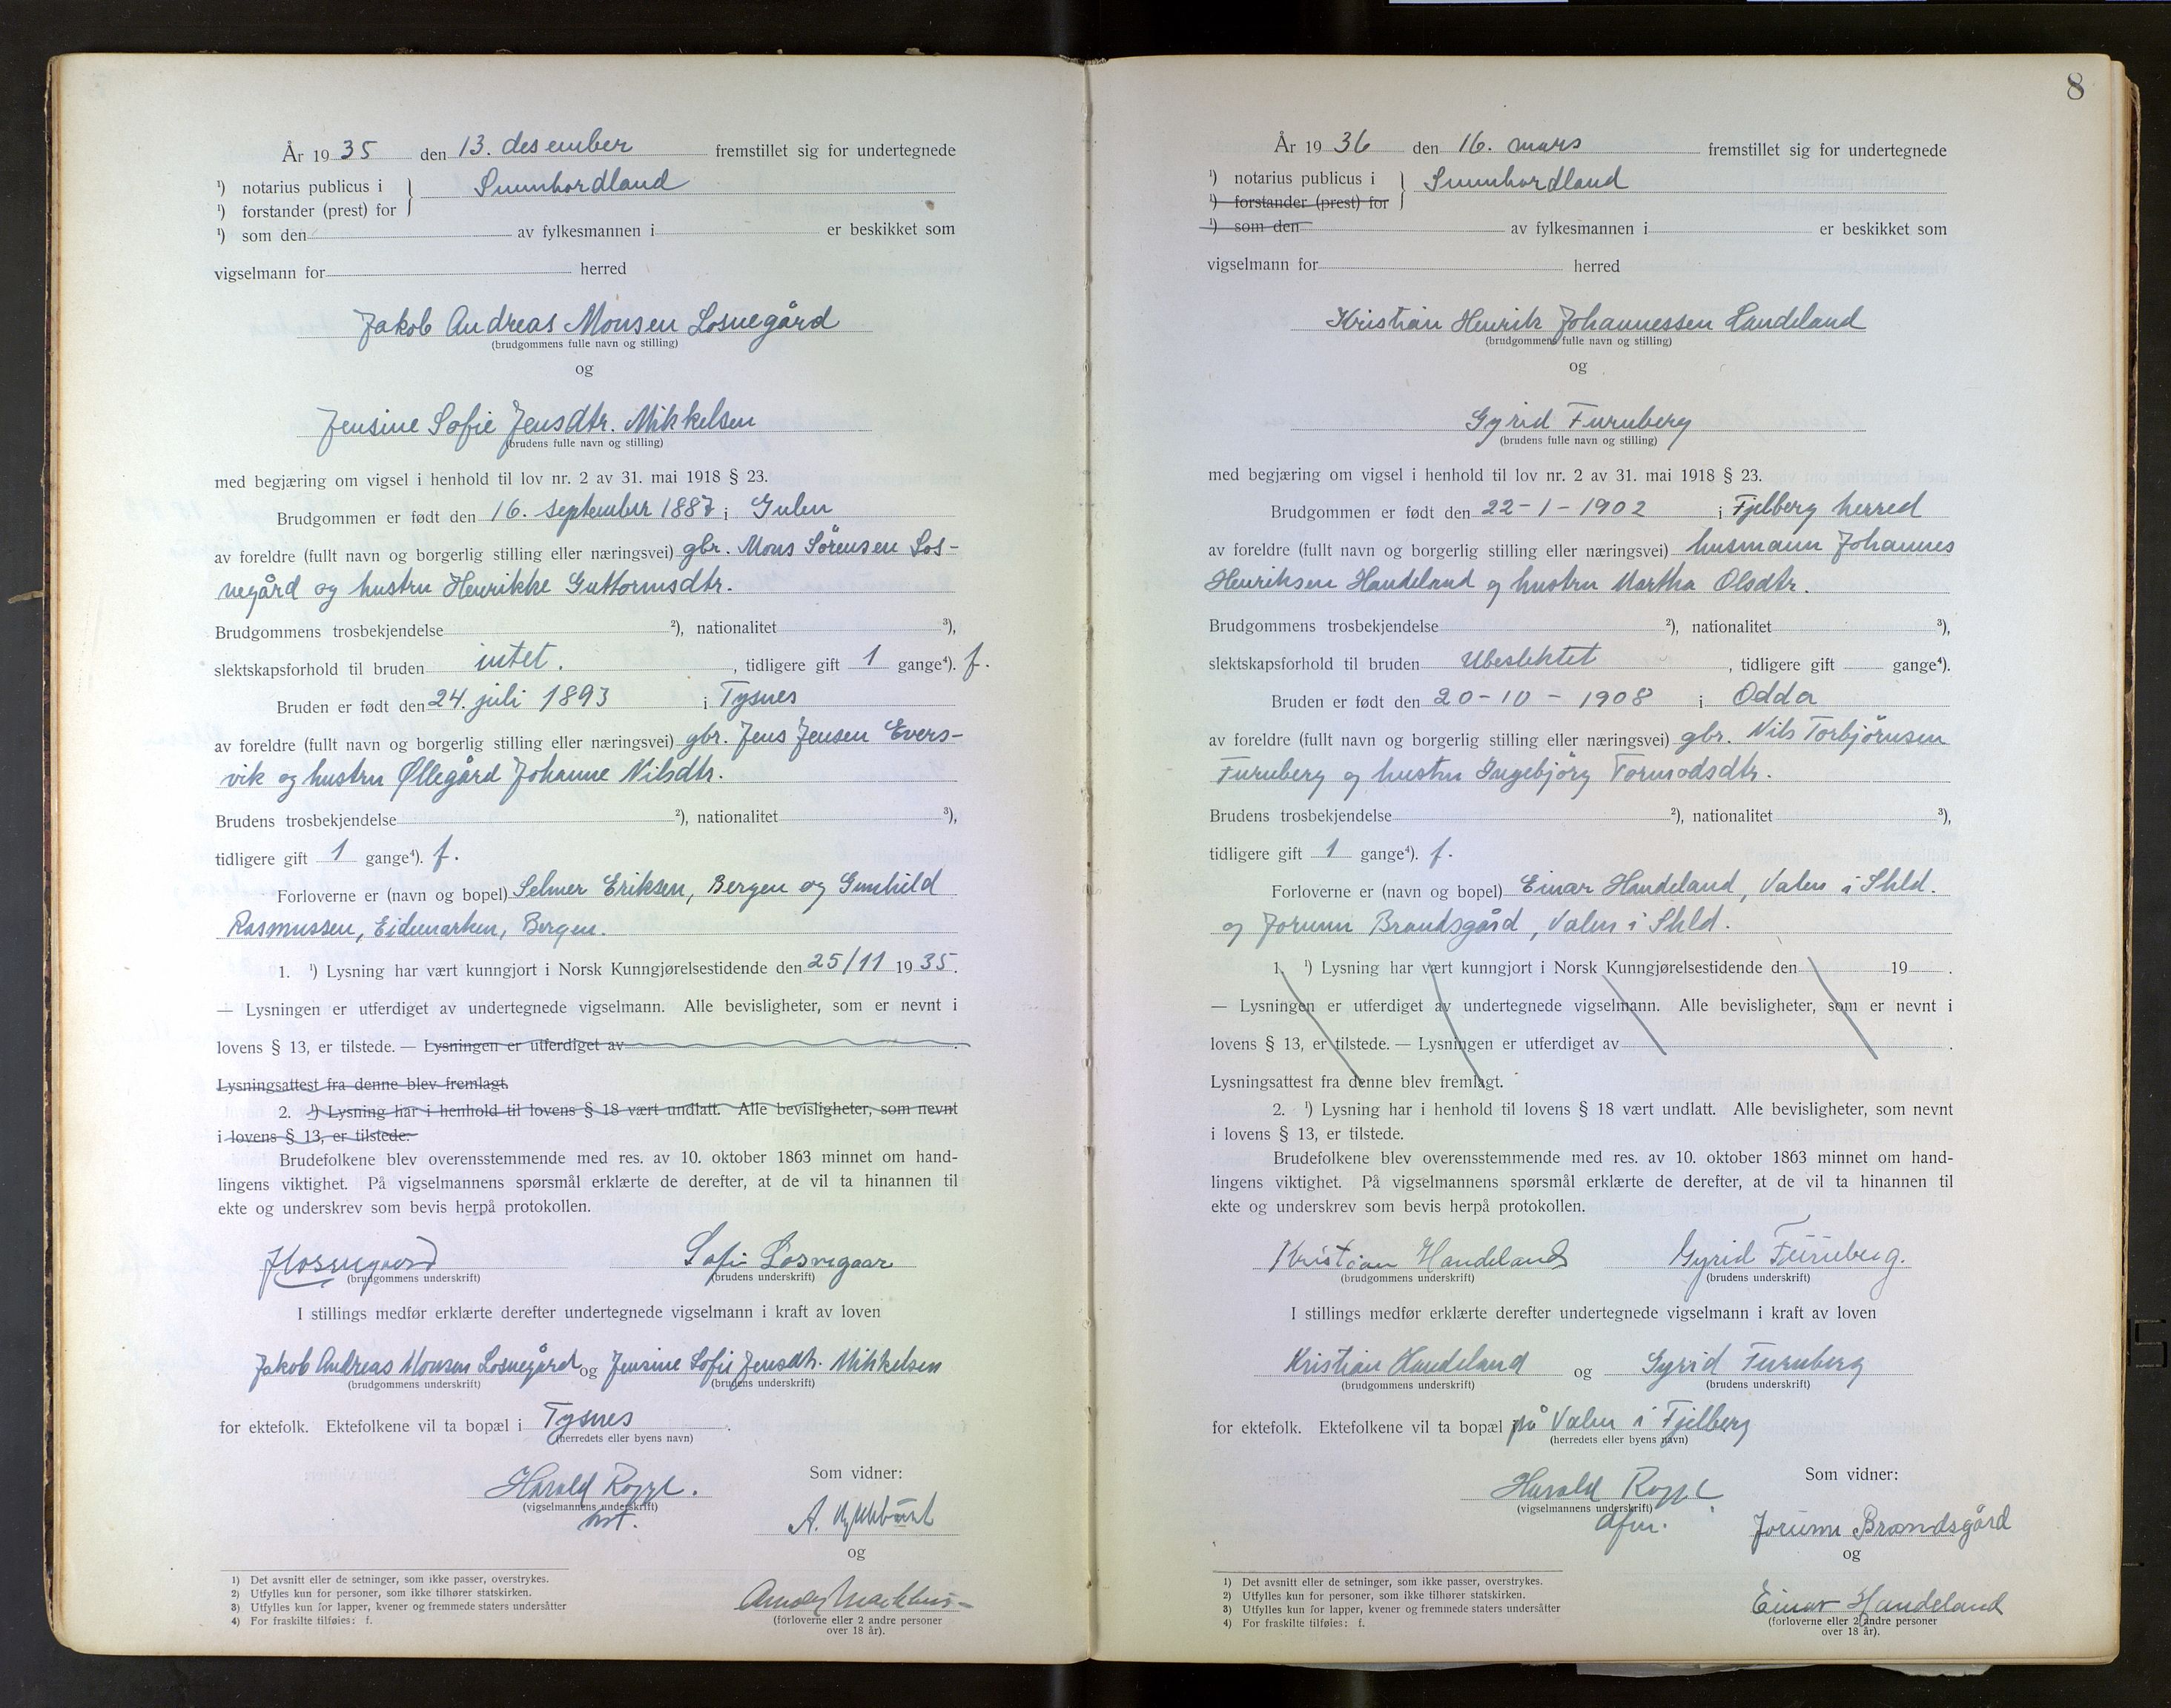 År 19 35 den 13. desember fremstillet sig for undertegnede
¹) notarius publicus i
Sunnhordland
¹) forstander (prest) for
¹) som den av fylkesmannen i er beskikket som
vigselmann for herred
Jakob Andreas Monsen Losnegård
(brudgommens fulle navn og stilling)
og
Jensine Sofie Jensdtr. Mikkelsen
(brudens fulle navn og stilling)
med begjæring om vigsel i henhold til lov nr. 2 av 31. mai 1918 § 23.
Brudgommen er født den 16. september 1887 i Gulen
av foreldre (fullt navn og borgerlig stilling eller næringsvei) gbr. Mons Sörensen Los-
negård og hustru Henrikke Guttormsdtr.
Brudgommens trosbekjendelse ²), nationalitet ³),
slektskapsforhold til bruden intet. , tidligere gift 1 gange⁴). f.
Bruden er født den 24. juli 1893 i Tysnes
av foreldre (fullt navn og borgerlig stilling eller næringsvei) gbr. Jens Jensen Evers-
vik og hustru Øllegård Johanne Nilsdtr.
Brudens trosbekjendelse ²), nationalitet ³),
tidligere gift 1 gange⁴). f.
Forloverne er (navn og bopel) Selmer Eriksen, Bergen og Gunhild
Rasmussen, Eidemarken, Bergen.
1. ¹) Lysning har vært kunngjort i Norsk Kunngjørelsestidende den 25/11 19 35.
— Lysningen er utferdiget av undertegnede vigselmann. Alle bevisligheter, som er nevnt i
lovens § 13, er tilstede. — Lysningen er utferdiget av .
Lysningsattest fra denne blev fremlagt.
2. ¹) Lysning har i henhold til lovens § 18 vært undlatt. Alle bevisligheter, som nevnt
i lovens § 13, er tilstede.
Brudefolkene blev overensstemmende med res. av 10. oktober 1863 minnet om hand-
lingens viktighet. På vigselmannens spørsmål erklærte de derefter, at de vil ta hinannen til
ekte og underskrev som bevis herpå protokollen.
JLosnegaard Sofie Losnegaar
(brudgommens underskrift) (brudens underskrift)
I stillings medfør erklærte derefter undertegnede vigselmann i kraft av loven
Jakob Andreas Monsen Losnegård og Jensine Sofie Jensdtr. Mikkelsen
(brudgommens underskrift) (brudens underskrift)
for ektefolk. Ektefolkene vil ta bopæl i Tysnes .
(herredets eller byens navn)
Harald Rogge. Som vidner:
(vigselmannens underskrift)
A.
og
(forloverne eller 2 andre personer
over 18 år).
1) Det avsnitt eller de setninger, som ikke passer, overstrykes.
2) Utfylles kun for personer, som ikke tilhører statskirken.
3) Utfylles kun for lapper, kvener og fremmede staters undersåtter
4) For fraskilte tilføies: f.
8
År 19 36 den 16. mars fremstillet sig for undertegnede
¹) notarius publicus i
Sunnhordland
¹) forstander (prest) for
¹) som den av fylkesmannen i er beskikket som
vigselmann for herred
Kristian Henrik Johannessen Handeland
(brudgommens fulle navn og stilling)
og
Gyrid Furuberg
(brudens fulle navn og stilling)
med begjæring om vigsel i henhold til lov nr. 2 av 31. mai 1918 § 23.
Brudgommen er født den 22-1-1902 i Fjelberg herred
av foreldre (fullt navn og borgerlig stilling eller næringsvei) husmann Johannes
Henriksen Handeland og hustru Martha Olsdtr.
Brudgommens trosbekjendelse ²), nationalitet ³),
slektskapsforhold til bruden Ubeslektet , tidligere gift gange⁴).
Bruden er født den 20-10-1908 i Odda
av foreldre (fullt navn og borgerlig stilling eller næringsvei) gbr. Nils Torbjörnsen
Furuberg og hustru Ingebjörg Tormodsdtr.
Brudens trosbekjendelse ²), nationalitet ³),
tidligere gift 1 gange⁴). f.
Forloverne er (navn og bopel) Einar Handeland, Valen i Shld.
og Jorunn Brandsgård, Valen i Shld.
1. ¹) Lysning har vært kunngjort i Norsk Kunngjørelsestidende den 19 .
— Lysningen er utferdiget av undertegnede vigselmann. Alle bevisligheter, som er nevnt i
lovens § 13, er tilstede. — Lysningen er utferdiget av .
Lysningsattest fra denne blev fremlagt.
2. ¹) Lysning har i henhold til lovens § 18 vært undlatt. Alle bevisligheter, som nevnt
i lovens § 13, er tilstede.
Brudefolkene blev overensstemmende med res. av 10. oktober 1863 minnet om hand-
lingens viktighet. På vigselmannens spørsmål erklærte de derefter, at de vil ta hinannen til
ekte og underskrev som bevis herpå protokollen.
Kristian Handeland Gyrid Furuberg.
(brudgommens underskrift) (brudens underskrift)
I stillings medfør erklærte derefter undertegnede vigselmann i kraft av loven
Kristian Handeland og Gyrid Furuberg
(brudgommens underskrift) (brudens underskrift)
for ektefolk. Ektefolkene vil ta bopæl på Valen i Fjelberg
(herredets eller byens navn)
Harald Rogge Som vidner:
(vigselmannens underskrift)
dfm. Jorunn Brandsgård
og
Einar Handeland
(forloverne eller 2 andre personer
over 18 år).
1) Det avsnitt eller de setninger, som ikke passer, overstrykes.
2) Utfylles kun for personer, som ikke tilhører statskirken.
3) Utfylles kun for lapper, kvener og fremmede staters undersåtter
4) For fraskilte tilføies: f.